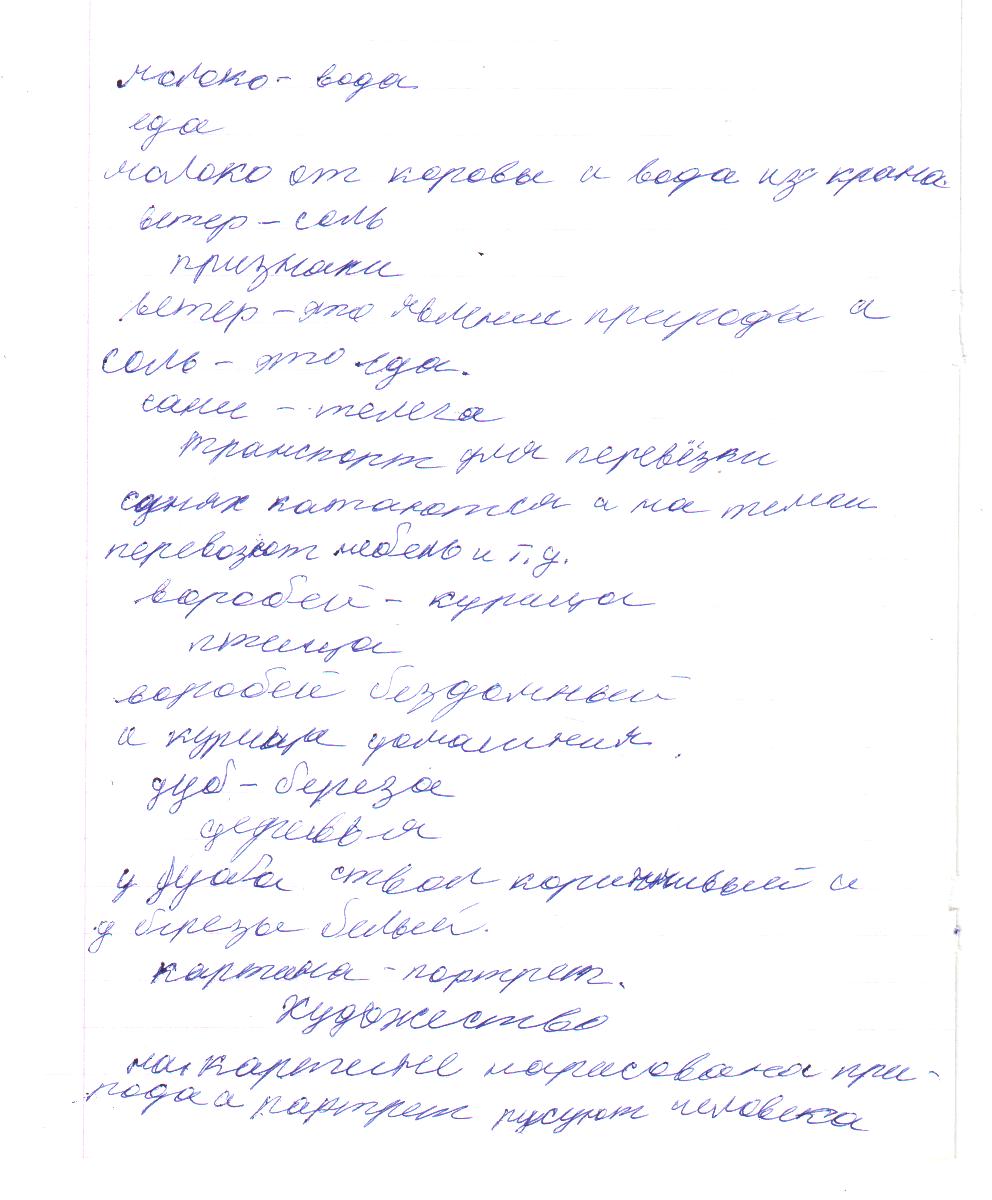 молоко - вода
еда
молоко от коровы а вода из крана.
ветер - соль
признаки
ветер - это явление природы а
соль - это еда.
сани - телега
транспорт для перевёзки
санях катаются а на телеги
перевозют мебель и т.д.
воробей - курица
птица
воробей бездомный
а курица домашняя
дуб - береза
деревья
у дуба ствол коричнивый а
у березы белый.
картина - портрет.
Художество
на картине нарисована при-
рода а партрет русуют человека